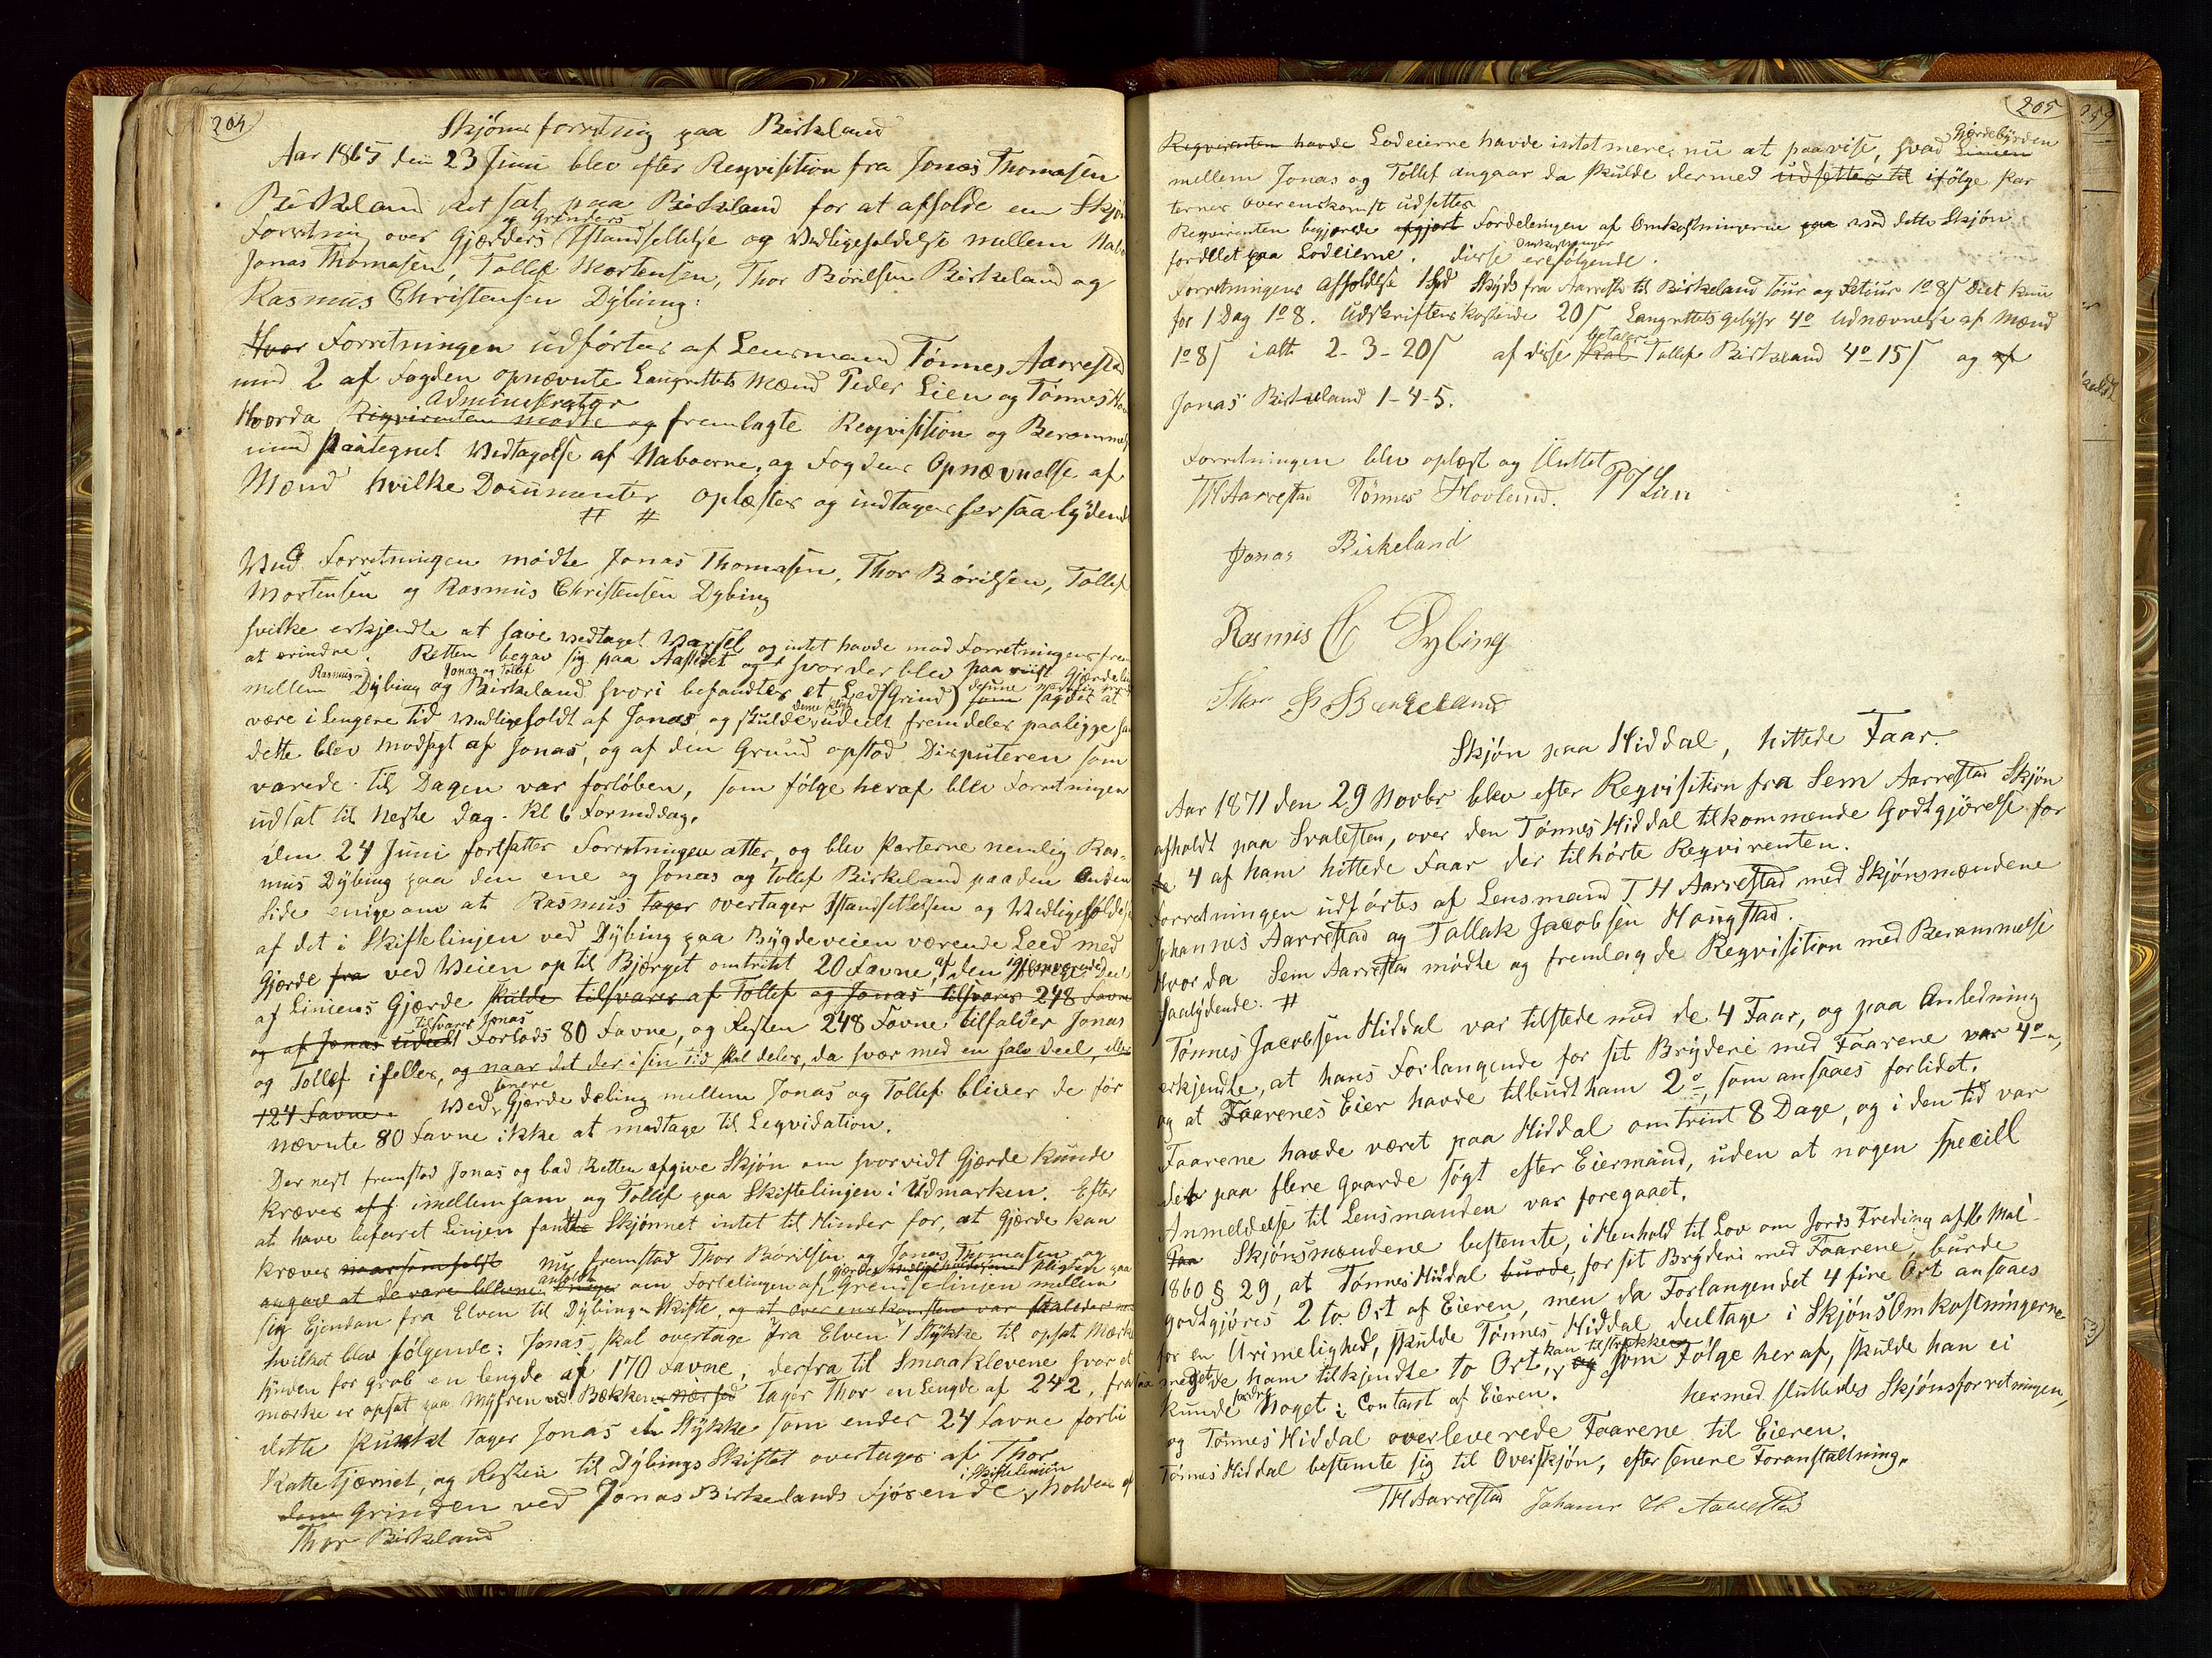 204
Skjønsforretning paa Birkeland
Aar 1865 den 23 Juni blev efter Reqvisition fra Jonas Thomasen
Birkeland Ret sat paa Birkeland for at afholde en Skjøn
og Grinders
Forretning over Gjærders Istandsettelse og Vedligeholdelse mellem Nabo
Jonas Thomasen, Tollef Mortensen, Thor Børilsen Birkeland og
Rasmus Christensen Dybing:
Hvor Forretningen udførtes af Lensmand Tønnes Aarrestad
med 2 af Fogden opnævnte Laugrettets Mænd Peder Lien og Tønnes Hov
Administrator
Hvorda Reqvirenten mødte og fremlagte Reqvisition og Berammels
med paategnet Vedtagelse af Naboerne, og Fogdens Opnævnelse af
Mænd hvilke Documenter oplæstes og indtages her saalydend
# #
Ved Forretningen mødte Jonas Thomasen, Thor Børilsen, Tollef
Mortensen og Rasmus Christensen Dybing
hvilke erkjendte at have vedtaget Varsel og intet havde mod Forretningens frem
at erindre. Retten begav sig paa Aastedet og hvor der blev paa viist Gjærdelin
Rasmus Jonas og Tollef denne
mellem Dybing og Birkeland hvori befandtes et Led (Grind) som sagdes at
denne pligt
være i lengere Tid vedligeholdt af Jonas, og skulde udeelt fremdeles paaligge ham
dette blev modsagt af Jonas, og af den Grund opstod Disputeren som
varede til Dagen var forløben, som følge heraf blev Forretningen
udsat til neste Dag. Kl 6 Formiddag.
den 24 Juni fortsattes Forretningen atter, og blev Parterne nemlig Ras-
mus Dybing paa den ene og Jonas og Tollef Birkeland paa den anden
Side enige om at Rasmus tager overtager Istandsettelsen og Vedligeholdels
af det i Skiftelinjen ved Dybing paa Bygdeveien værende Leed med
Gjærde fra ved Veien op til Bjerget omtrent 20 Favne, af den igjenværende Deel
af Liniens Gjærde skulde tilsvares af Tollef og Jonas tilsvares 248 Favne
tilsvarer Jonas
og af Jonas udeelt Forlods 80 Favne, og Resten 248 Favne tilfalder Jonas
og Tollef ifelles, og naar det der i sin tid skal deles, da hvor med en halv Deel, eller
senere
124 Favne. Ved Gjærde deling mellem Jonas og Tollef bliver de før
nævnte 80 Favne ikke at medtage til Leqvidation.
Der nest fremstod Jonas og bad Retten afgive Skjøn om hvorvidt Gjærde kunde
kræves off imellem ham og Tollef paa Skiftelingen i Udmarken. Efter
at have befaret Linjen fandt Skjønnet intet til Hinder for, at Gjærde kan
kræves naarsomhelst nu fremstod Thor Børilsen og Jonas Thomasen og
gjærdes vedligeholdelsens pligten paa
angave at de vare blevne enige om Fordelingen af Grendselinjen mellem
sig Ejendan fra Elven til Dybings Skifte og at overenskomsten var
hvilket blev følgende: Jonas skal overtage fra Elven 1 Stykke til opsat Mærke
synden for grob en lengde af 170 Favne, derfra til Smaaklevene hvor et
mærke er opsat paa Myhren ved Bekken tager Thor en Lengde af 242, fra
dette punkt tager Jonas et Stykke som ender 24 Favne forbi
Kattetjærnet, og Resten til Dybings Skiftet overtages af Thor
i Skiftelinien
Grinden ved Jonas Birkelands Fjøsende, holdes af
Thor Birkeland
205
Gjærdebyrden
Reqvirenten havde Lodeierne havde intet mere nu at paavise, hvad Linien
mellem Jonas og Tollef angaar da skulde dermed udsettes til ifølge Par
ternes overenskomst udsettes
Reqvirenten begjærede afgjort Fordelingen af Omkostningerne paa ved dette Skjøn
Omkostninger
fordelet paa Lodeierne. disse ere følgende.
Forretningens Afholdelse 1 Spd Skyds fra Aarrestad til Birkeland tour og Retour 1o 8s Diet kun
for 1 Dag 1o 8. Udskriftens kostende 20s Laugrettets gebyhr 4o Udnævnelse af Mænd
betaler
1o 8s ialt 2-3-20s af disse skal Tollef Birkeland 4o-15s og af
Jonas Birkeland 1-4-5.
Forretningen blev oplæst og sluttet
TH Aarrestad Tønnes Hovland. P Lien
Jonas Birkeland
Rasmis C Dybing
Thor B Birkeland
Skjøn paa Middal, hittede Faar.
Aar 1871 den 29 Novbr blev efter Reqvisition fra Sem Aarrestad Skjøn
afholdt paa Svalesten, over den Tønnes Middal tilkommende Godtgjørelse for
de 4 af ham hittede Faar der tilhørte Reqvirenten.
Forretningen udførtes af Lensmand T H Aarrestad med Skjønsmændene
Johannes Aarrestad og Tallak Jacobsen Haugstad.
Hvor da Sem Aarrestad mødte og fremlagde Reqvisition med Berammelse
saalydende. #
Tønnes Jacobsen Middal var tilstede med de 4 Faar, og paa Anledning
erkjendte, at hans Forlangende for sit Bryderi med Faarene var 4o,
og at Faarenes Eier havde tilbudt ham 2o, som ansaaes forlidet.
Faarene havde været paa Middal omtrint 8 Dage, og i den tid var
det paa flere Gaarde søgt efter Eiermand, uden at nogen speciell
Anmeldelse til Lensmanden var foregaaet.
Paa Skjønsmændene bestemte, i Henhold til Lov om Jords Freding af 16 Mai
1860 § 29, at Tønnes Middal burde, for sit Bryderi med Faarene, burde
godtgjøres 2 to Ort af Eieren, men da Forlangendet 4 fire Ort ansaaes
for en Urimelighed, skulde Tønnes Middal deeltage i Skjøns Omkostningerne
kan tilstrekke
saa meget de ham tilkjendte to Ort, og som Følge heraf, skulde han ei
fordre
kunde Noget i Contant af Eieren. hermed sluttedes Skjønsforretningen,
og Tønnes Middal overleverede Faarene til Eieren.
Tønnes Middal bestemte sig til Overskjøn, efter senere Foranstaltning.
TH Aarrestad Johannes H Aarrestad